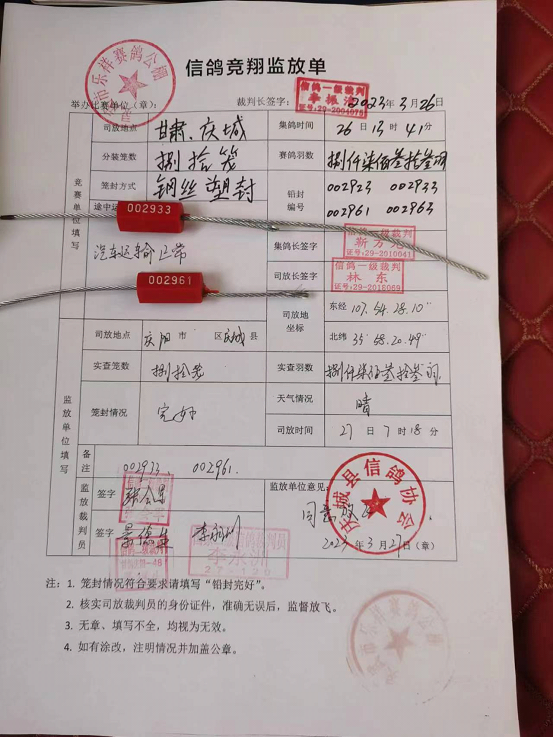 信鸽竞翔监放单
举办比赛单位（章）： 裁判长签字： 2023年3月26日
乐祥赛鸽公棚
信鸽一级裁判
司放地点 甘肃、庆城 集鸽时间 26日13时41分
分装笼数 捌拾笼 赛鸽羽数 捌仟柒佰叁拾叁羽
竞赛单位填写
笼封方式 钢丝塑封 铅封编号 002923 002933
002961 002963
002933
汽车运输正常 集鸽长签字 信鸽一级裁判
002961
司放长签字 信鸽一级裁判
林东
证号:29-2018069
司放地坐标 东经 107.54.28.10"
北纬 35°58.20.49"
司放地点 庆阳市 区庆城县
实查笼数 捌拾笼 实查羽数 捌仟柒佰叁拾叁羽
监放单位填写
笼封情况 完好 天气情况 晴
司放时间 27日7时18分
备注 002933. 002961.
监放裁判员
签字
签字
监放单位意见：
同意放飞
庆城县信鸽协会
2023年3月27日(章)
注：1. 笼封情况符合要求请填写“铅封完好”。
2. 核实司放裁判员的身份证件，准确无误后，监督放飞。
3. 无章、填写不全，均视为无效。
4. 如有涂改，注明情况并加盖公章。